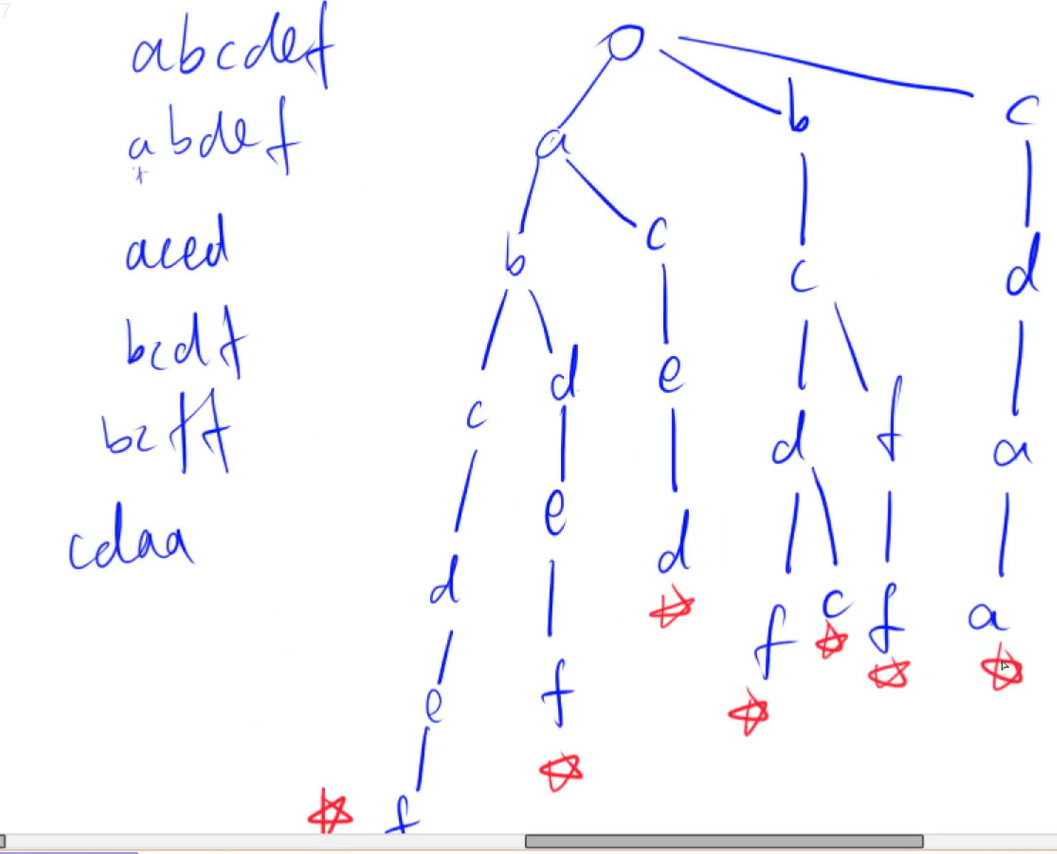 7
abcdef
abdef
aced
bcdf
bcff
cdaa
a b c
b c c d
c d e d f a
d e d f c f a
e f
f